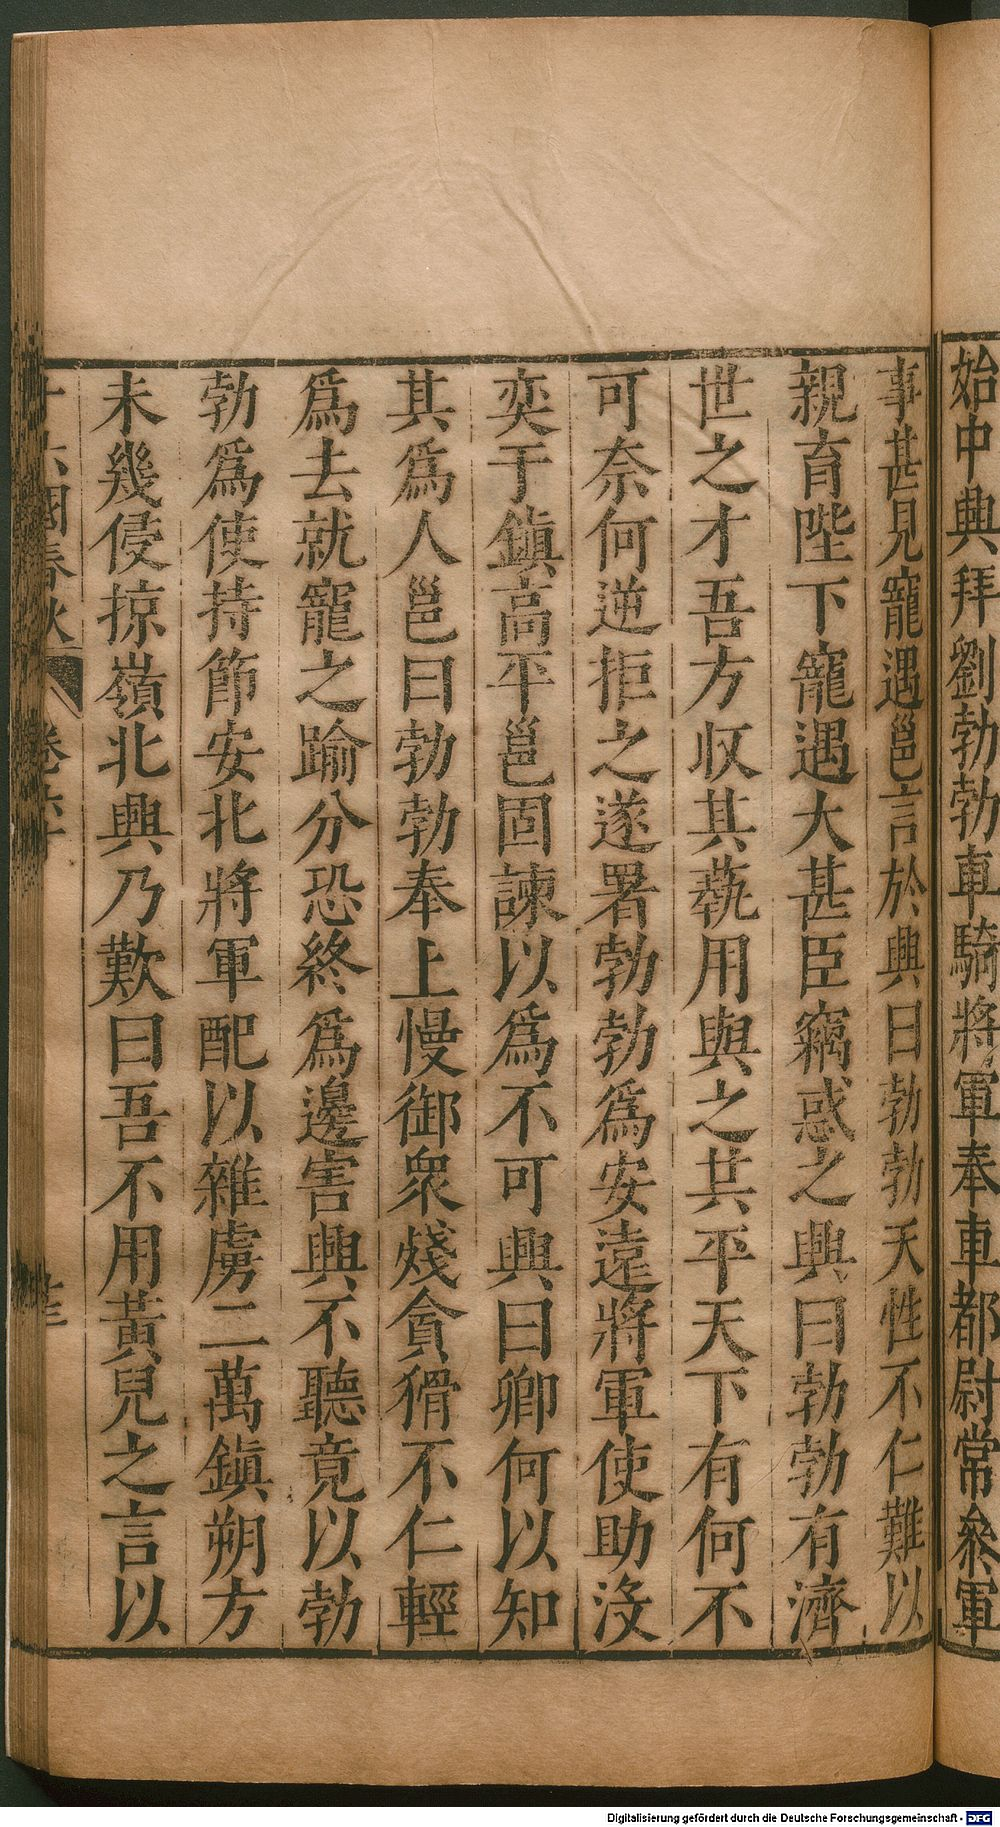 始中興拜劉勃勃車騎將軍奉車都尉常參軍
事甚見寵遇邕言於興曰勃勃天性不仁難以
親育陛下寵遇大甚臣竊惑之興曰勃勃有濟
世之才吾方收其藝用與之共平天下有何不
可奈何逆拒之遂署勃勃爲安遠將軍使助沒
奕于鎭高平邕固諫以爲不可興曰卿何以知
其爲人邕曰勃勃奉上慢御衆殘貪猾不仁輕
爲去就寵之踰分恐終爲邊害興不聽竟以勃
勃爲使持節安北將軍配以雜虜二萬鎭朔方
未幾侵掠嶺北興乃歎曰吾不用黃兒之言以
十六國春秋 卷六十
Digitalisierung gefördert durch die Deutsche Forschungsgemeinschaft - DFG